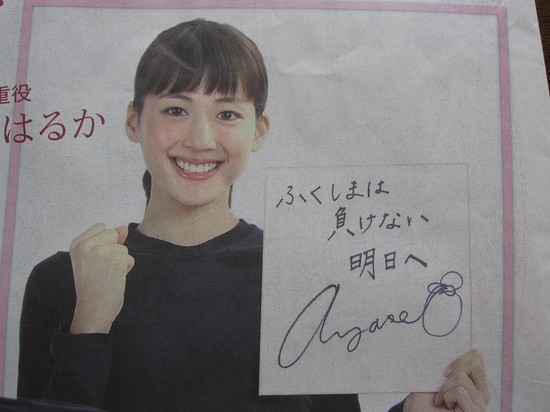 重役
はるか
ふくしまは
負けない
明日へ
Ayase